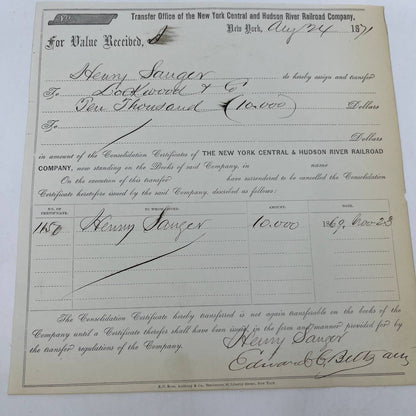 Transfer Office of the New York Central and Hudson River Railroad Company,
New York, Aug 24 1871
For Value Received, I
Henry Sanger do hereby assign and transfer
To Lockwood & Co
Ten Thousand (10.000) Dollars
To Dollars
in amount of the Consolidation Certificates of THE NEW YORK CENTRAL & HUDSON RIVER RAILROAD
COMPANY, now standing on the Books of said Company, in name
On the execution of this transfer have surrendered to be cancelled the Consolidation
Certificate heretofore issued by the said Company, described as follows:
NO. OF CERTIFICATE. TO WHOM ISSUED. AMOUNT. DATE.
1150 Henry Sanger 10.000 1869. Nov 23
The Consolidation Certificate hereby transferred is not again transferable on the books of the
Company until a Certificate therefor shall have been issued in the form and manner provided for by
the transfer regulations of the Company.
Henry Sanger
Edward C